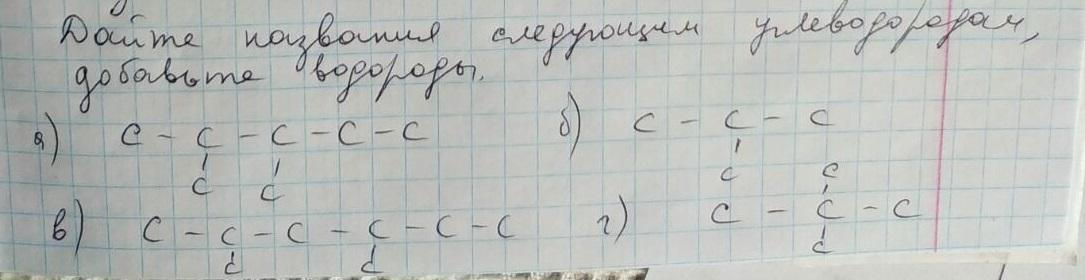 Дайте названия следующим углеводородам,
добавьте водороды.
а) C - C - C - C - C
C C
б) C - C - C
C
в) C - C - C - C - C - C
C C
г) C
C - C - C
C